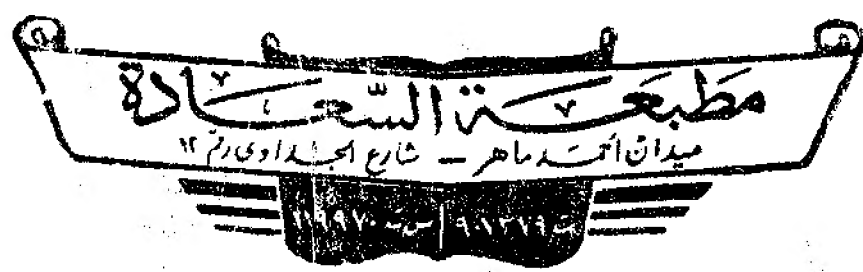 مطبعة السعادة
ميدان أحمد ماهر — شارع الجداوى رقم ١٢
ت ٩٠١٣٧٩ | س ت